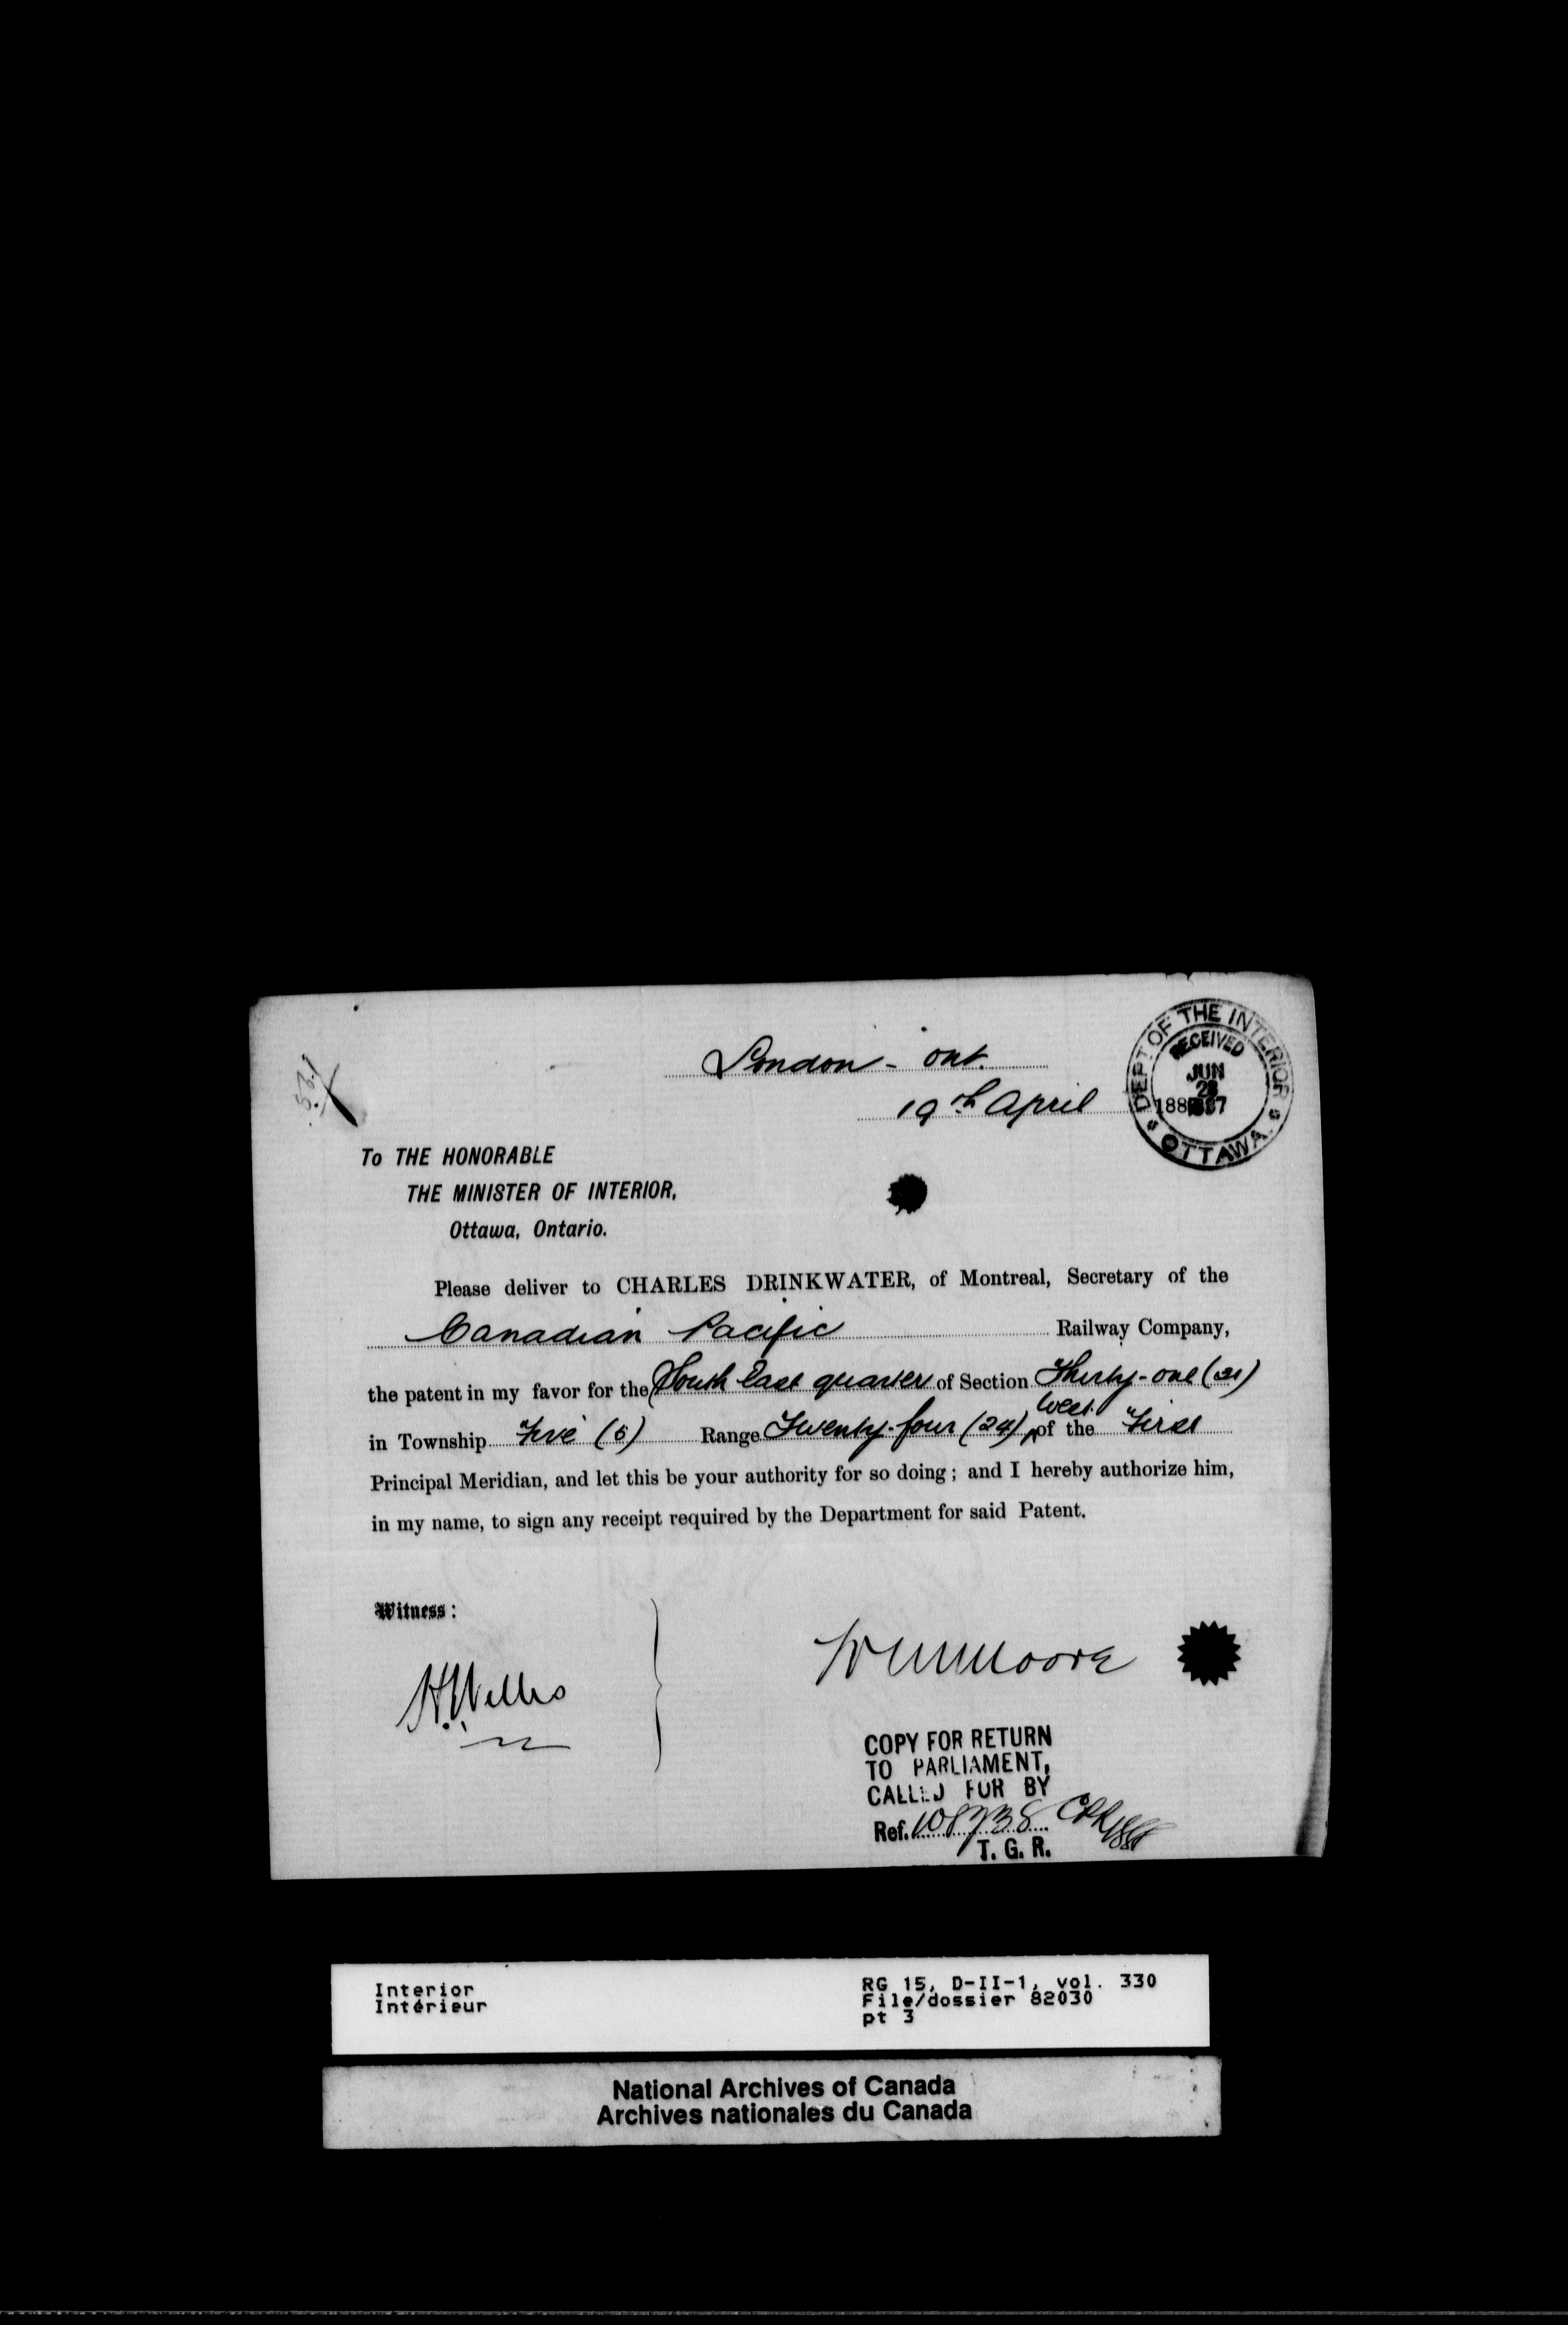 London - Ont.
19th April 188
DEPT OF THE INTERIOR
RECEIVED
JUN
1887
OTTAWA.
To THE HONORABLE
THE MINISTER OF INTERIOR,
Ottawa, Ontario.
Please deliver to CHARLES DRINKWATER, of Montreal, Secretary of the
Canadian Pacific Railway Company,
the patent in my favor for the South East quarter of Section Thirty-one (31)
in Township Five (5) Range Twenty-four (24) West of the First
Principal Meridian, and let this be your authority for so doing; and I hereby authorize him,
in my name, to sign any receipt required by the Department for said Patent.
Witness:
Wm Moore
COPY FOR RETURN
TO PARLIAMENT,
CALLED FOR BY
Ref. 108738
T. G. R.
Interior
Intérieur
RG 15, D-II-1, vol. 330
File/dossier 82030
pt 3
National Archives of Canada
Archives nationales du Canada